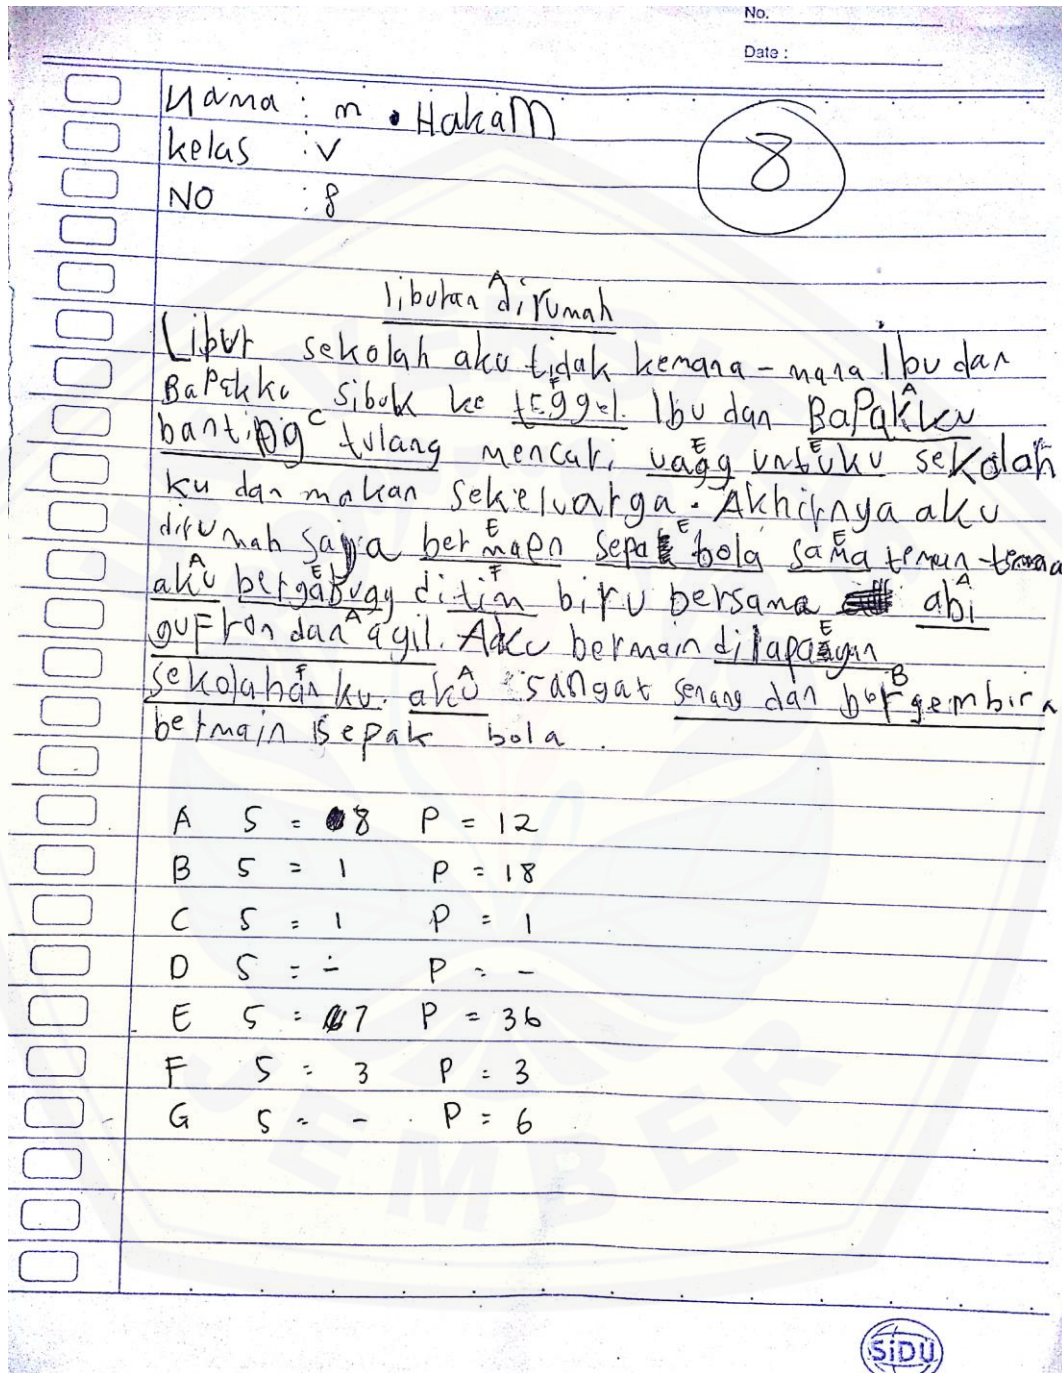 No.
Date :
Nama : m . Hakam
kelas : V
NO : 8
8
liburan dirumah
A
Libur sekolah aku tidak kemana - mana Ibu dan
Bapakku sibuk ke teggel. Ibu dan BaPakku
F A
banting tulang mencari uagg untuku sekolah
C E E
ku dan makan sekeluarga. Akhirnya aku
dirumah saja bermaen sepak bola sama teman-teman
E E E
aku bergabugg ditim biru bersama abi
A E F A
guFron dan agil. Aku bermain dilapangan
A E
sekolahan ku. aku sangat senang dan bergembira
F A B
bermain sepak bola.
A S = 8 P = 12
B S = 1 P = 18
C S = 1 P = 1
D S = - P = -
E S = 7 P = 36
F S = 3 P = 3
G S = - P = 6
JEMBER
SiDU